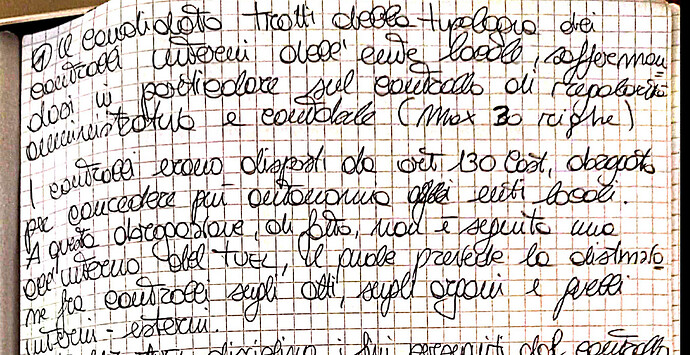 1) Il candidato tratti della tipologia dei
controlli interni dell'ente locale, sofferman
dosi in particolare sul controllo di regolarità
amministrativa e contabile (Max 20 righe)
I controlli erano disposti da art 130 Cost, abrogato
per concedere più autonomia agli enti locali.
A questa abrogazione, di fatto, non è seguita una
all'interno del tuel, il quale prevede la distinzio
ne fra controlli sugli atti, sugli organi e quelli
interni - esterni.
disciplina i fini perseguiti dal controllo